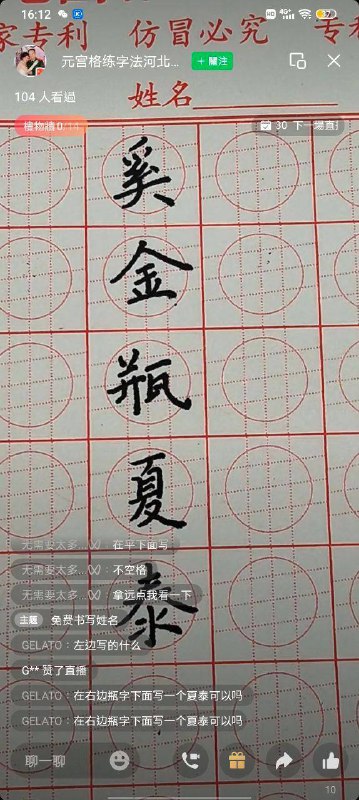 16:12
家专利 仿冒必究 专利
元宫格练字法河北...
+ 關注
104 人看過
姓名
30 下一場直播
奚
金
瓶
夏
泰
无需要太多...: 在平下面写
无需要太多...: 不空格
无需要太多...: 拿远点我看一下
主题 免费书写姓名
GELATO: 左边写的什么
G** 赞了直播
GELATO: 在右边瓶字下面写一个夏泰可以吗
GELATO: 在右边瓶字下面写一个夏泰可以吗
聊一聊
10